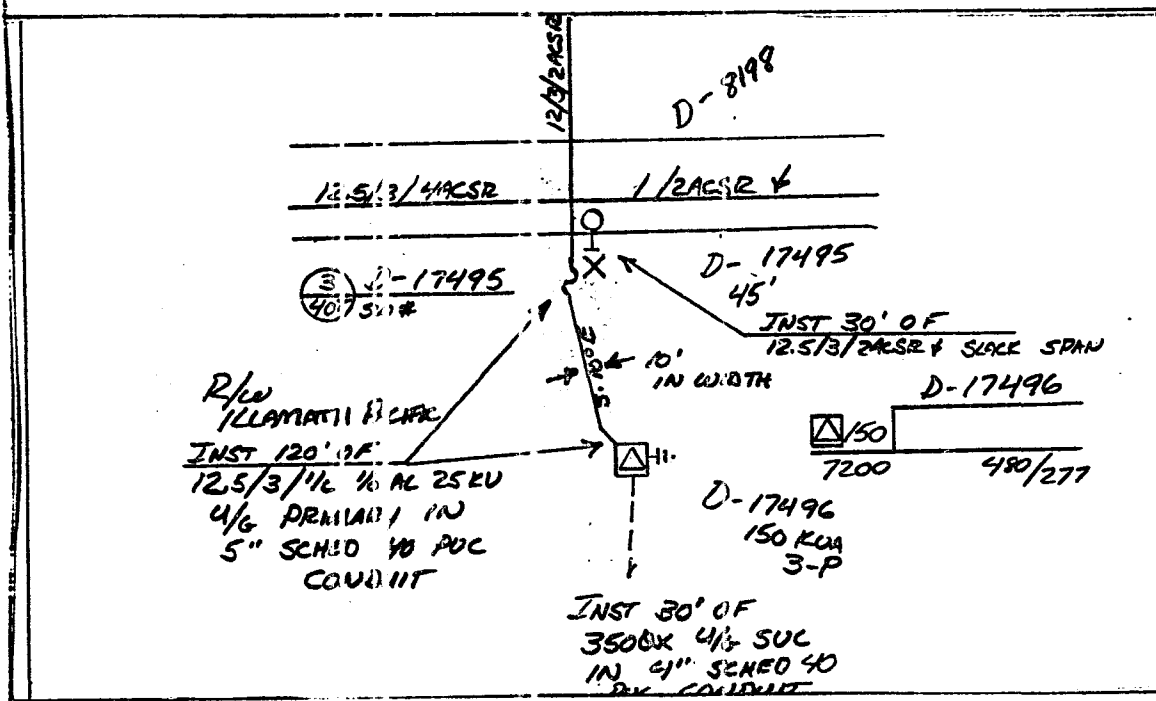 12/3/2ACSR
D-8198
12.5/3/4ACSR
1/2ACSR
D-17495
3
40
D-17495
45'
INST 30' OF
12.5/3/2ACSR SLACK SPAN
10'
IN WIDTH
R/W
INST 120' OF
12.5/3/ AL 25KV
U/G PRIMARY IN
5" SCHED 40 PVC
CONDUIT
D-17496
150
7200
480/277
D-17496
150 KVA
3-P
INST 30' OF
U/G SVC
IN 4" SCHED 40
PVC CONDUIT